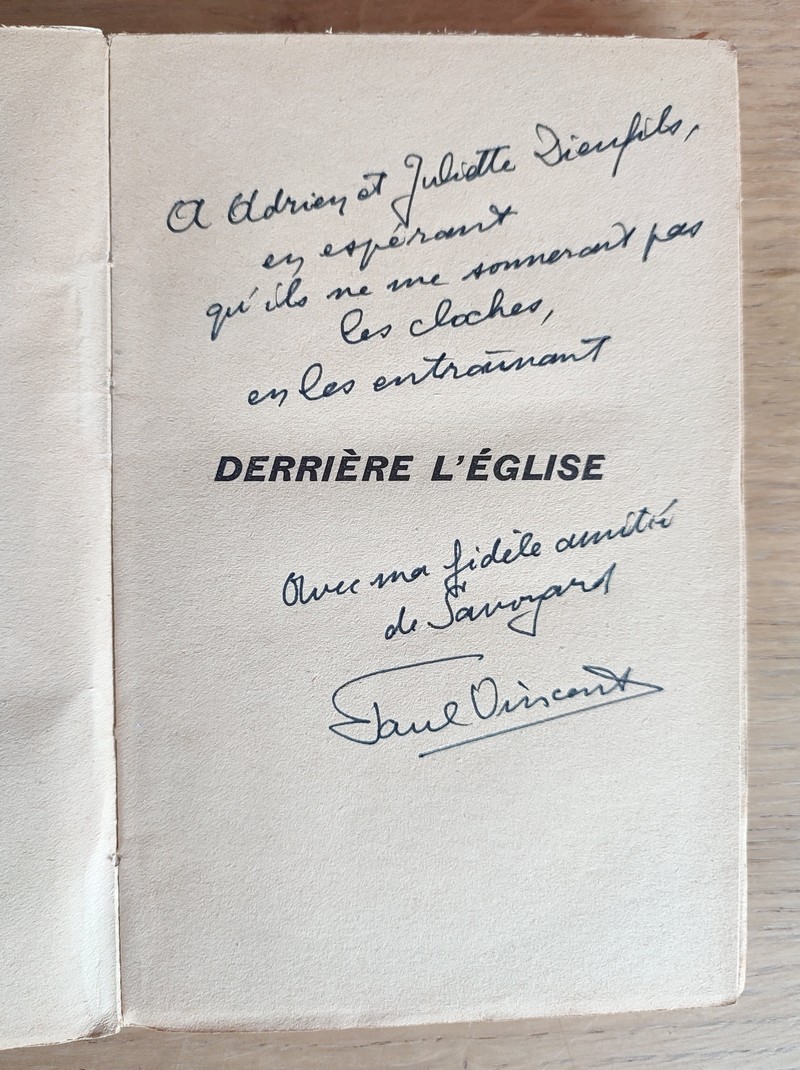 A Adrien et Juliette Dieufils,
en espérant
qu'ils ne me sonneront pas
les cloches,
en les entraînant
DERRIÈRE L'ÉGLISE
Avec ma fidèle amitié
de Savoyard
Paul Vincent